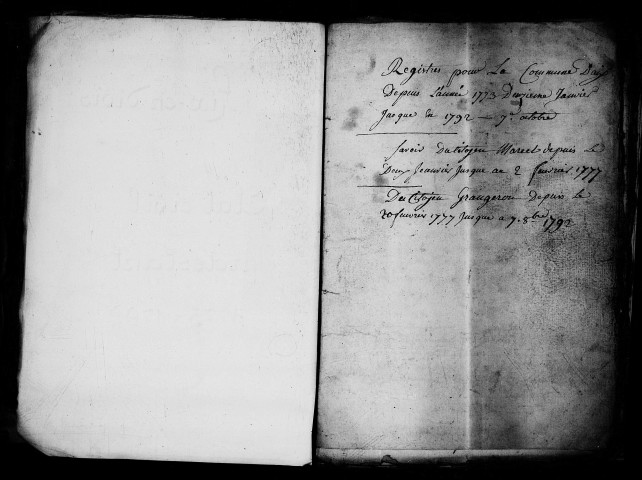 Registres pour La Commune
Depuis L'année 1773 Deuxieme Janvier
Jusque en 1792 — 7e octobre
Savoir Du Citoyen Maret depuis Le
Deux Jeanvier Jusque au 2 fevrier 1777
Du Citoyen Grangeron Depuis le
20 fevrier 1777 Jusque a 7. 8bre 1792